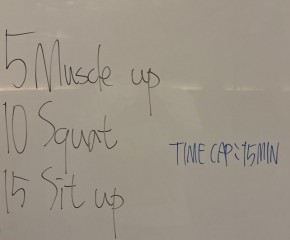 5 Muscle up
10 Squat
15 Sit up
TIME CAP: 15MIN